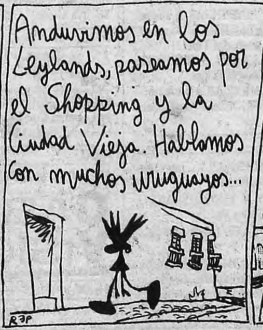 Anduvimos en los
Leylands, paseamos por
el Shopping y la
Ciudad Vieja. Hablamos
con muchos uruguayos...
REP